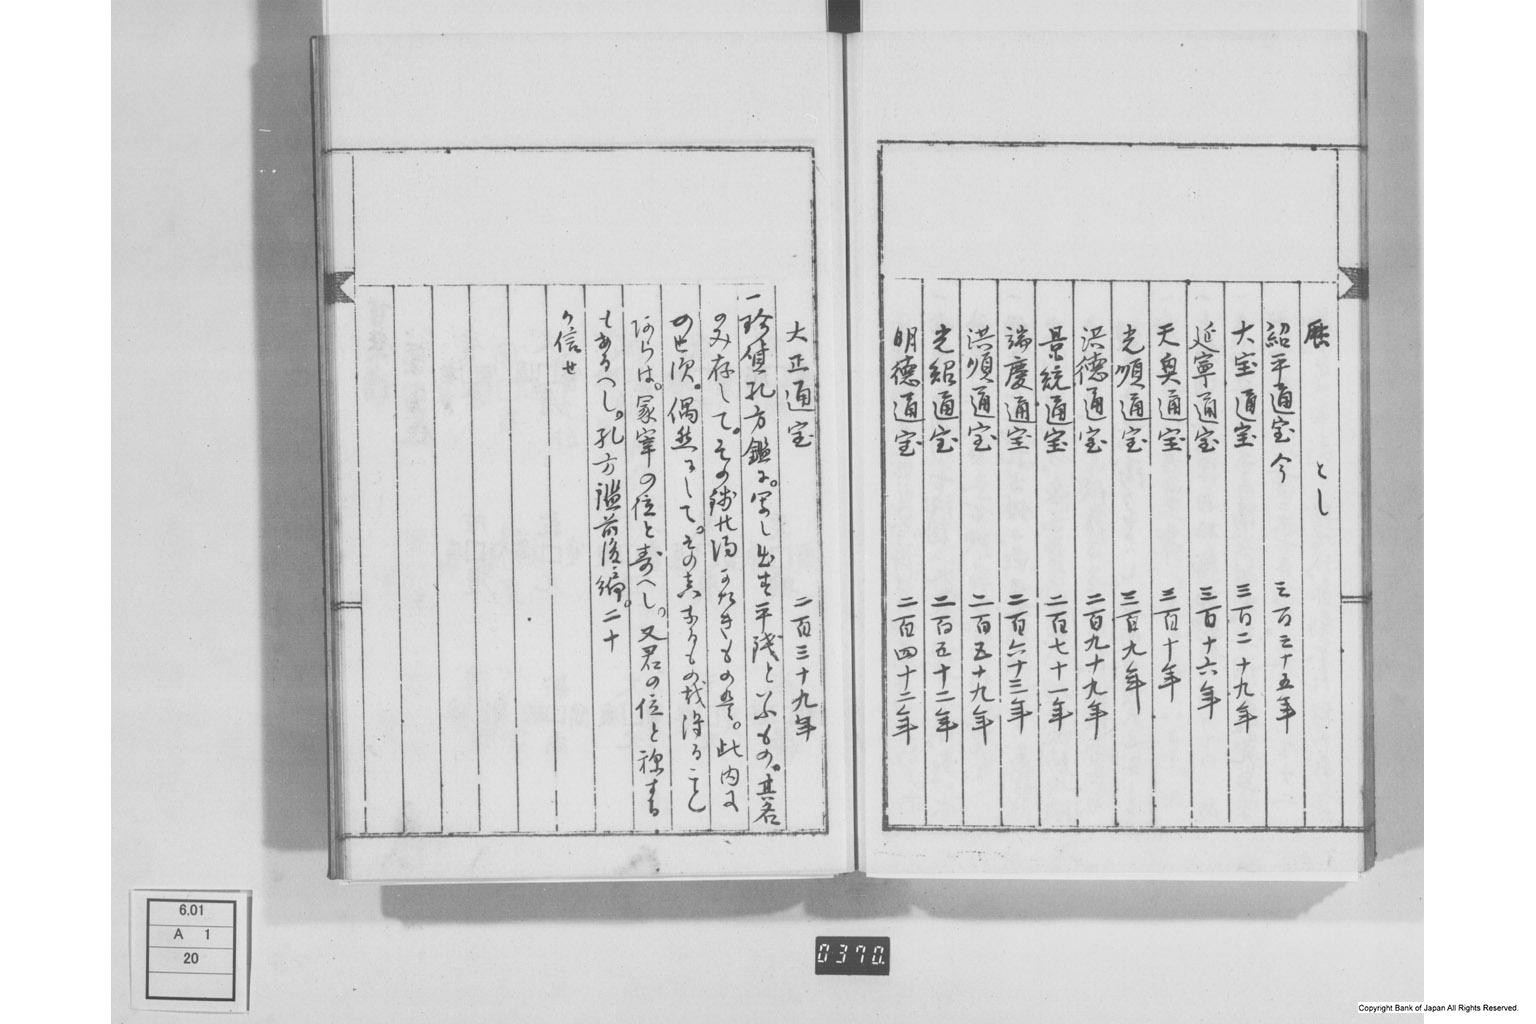 暦　とし
紹平通宝　今　三百三十五年
大宝通宝　三百二十九年
延寧通宝　三百十六年
天興通宝　三百十年
光順通宝　三百九年
洪徳通宝　二百九十九年
景統通宝　二百七十一年
端慶通宝　二百六十三年
洪順通宝　二百五十九年
光紹通宝　二百五十二年
明徳通宝　二百四十二年
大正通宝　二百三十九年
一珍貨孔方鑑に。写し出す平銭といふもの。其名
のみ存して。その銭は得かたきもの。此内に
の世次。偶然にして。その真なるもの我得ること
あらは。冢宰の位と寿へし。又君の位と称する
もあるへし。孔方鑑前後編。二十
か信せ
6.01
A 1
20
0370.
Copyright Bank of Japan All Rights Reserved.